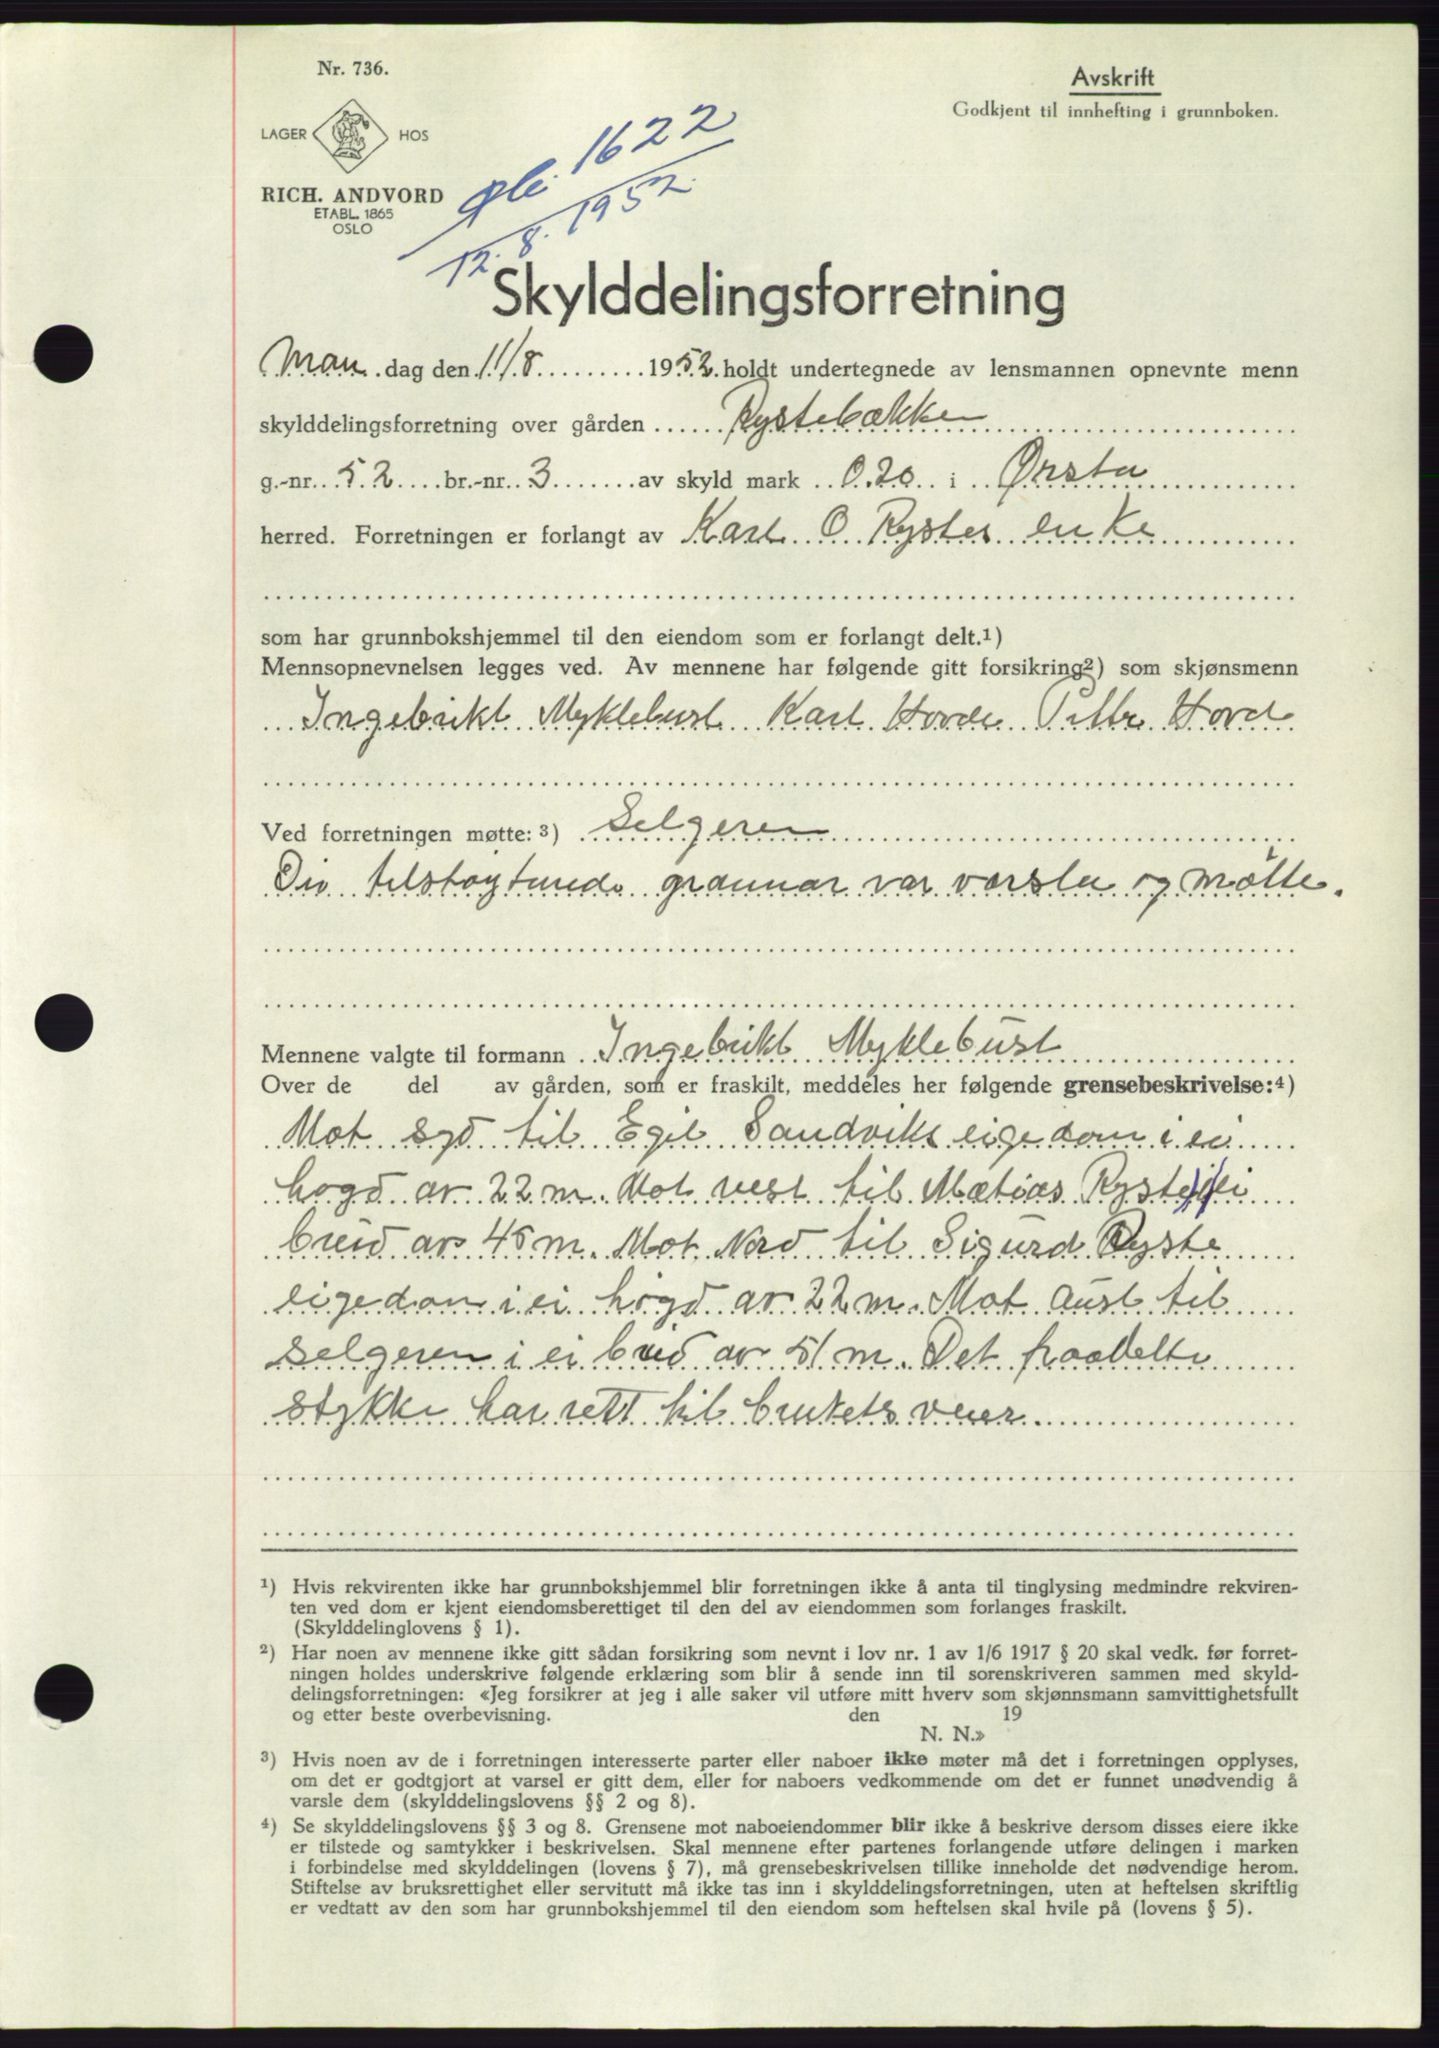 Nr. 736.
Avskrift
Godkjent til innhefting i grunnboken.
LAGER HOS
RICH. ANDVORD
ETABL. 1865
OSLO
1622
12.8.1952
Skylddelingsforretning
Man dag den 11/8 1952 holdt undertegnede av lensmannen opnevnte menn
skylddelingsforretning over gården Rystebække
g.-nr. 52 br.-nr. 3 av skyld mark 0.20 i Ørsta
herred. Forretningen er forlangt av Karl O Rystes enke
som har grunnbokshjemmel til den eiendom som er forlangt delt.¹)
Mennsopnevnelsen legges ved. Av mennene har følgende gitt forsikring²) som skjønsmenn
Ingebrikt Myklebust Karl Hovde Petter Hovd
Ved forretningen møtte: ³) Selgeren
Dei tilstøytende grannar var varsla og møtte.
Mennene valgte til formann Ingebrikt Myklebust
Over de del av gården, som er fraskilt, meddeles her følgende grensebeskrivelse:⁴)
Mot syd til Egil Sandviks eigedom i ei
høgd av 22 m. Mot vest til Matias Ryste i ei
breid av 45 m. Mot Nord til Sigurd Ryste
eigedom i ei høgd av 22 m. Mot aust til
selgeren i ei breid av 51 m. Det fraadelte
stykke har rett til brukets veier.
¹) Hvis rekvirenten ikke har grunnbokshjemmel blir forretningen ikke å anta til tinglysing medmindre rekviren-
ten ved dom er kjent eiendomsberettiget til den del av eiendommen som forlanges fraskilt.
(Skylddelinglovens § 1).
²) Har noen av mennene ikke gitt sådan forsikring som nevnt i lov nr. 1 av 1/6 1917 § 20 skal vedk. før forret-
ningen holdes underskrive følgende erklæring som blir å sende inn til sorenskriveren sammen med skyld-
delingsforretningen: «Jeg forsikrer at jeg i alle saker vil utføre mitt hverv som skjønnsmann samvittighetsfullt
og etter beste overbevisning. den 19
N. N.»
³) Hvis noen av de i forretningen interesserte parter eller naboer ikke møter må det i forretningen opplyses,
om det er godtgjort at varsel er gitt dem, eller for naboers vedkommende om det er funnet unødvendig å
varsle dem (skylddelingslovens §§ 2 og 8).
⁴) Se skylddelingslovens §§ 3 og 8. Grensene mot naboeiendommer blir ikke å beskrive dersom disses eiere ikke
er tilstede og samtykker i beskrivelsen. Skal mennene efter partenes forlangende utføre delingen i marken
i forbindelse med skylddelingen (lovens § 7), må grensebeskrivelsen tillike inneholde det nødvendige herom.
Stiftelse av bruksrettighet eller servitutt må ikke tas inn i skylddelingsforretningen, uten at heftelsen skriftlig
er vedtatt av den som har grunnbokshjemmel til den eiendom som heftelsen skal hvile på (lovens § 5).